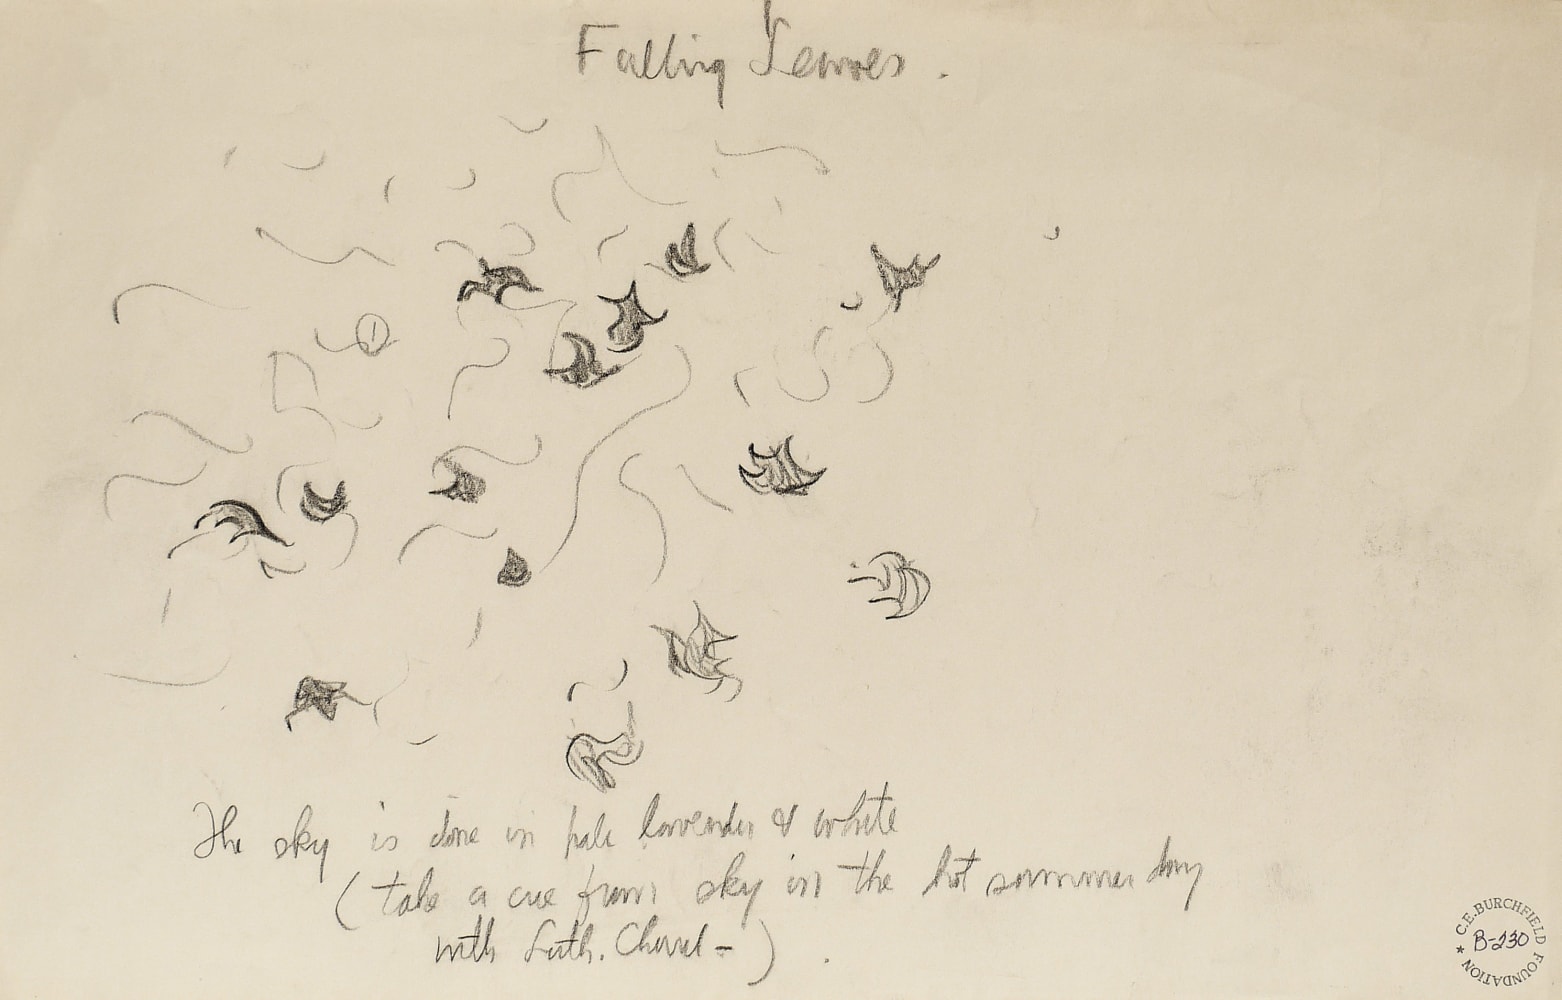 Falling Leaves.
The sky is done in pale lavender & white
(take a cue from sky in the hot summer day
with Luth. Church -).
C.E. BURCHFIELD FOUNDATION
B-230